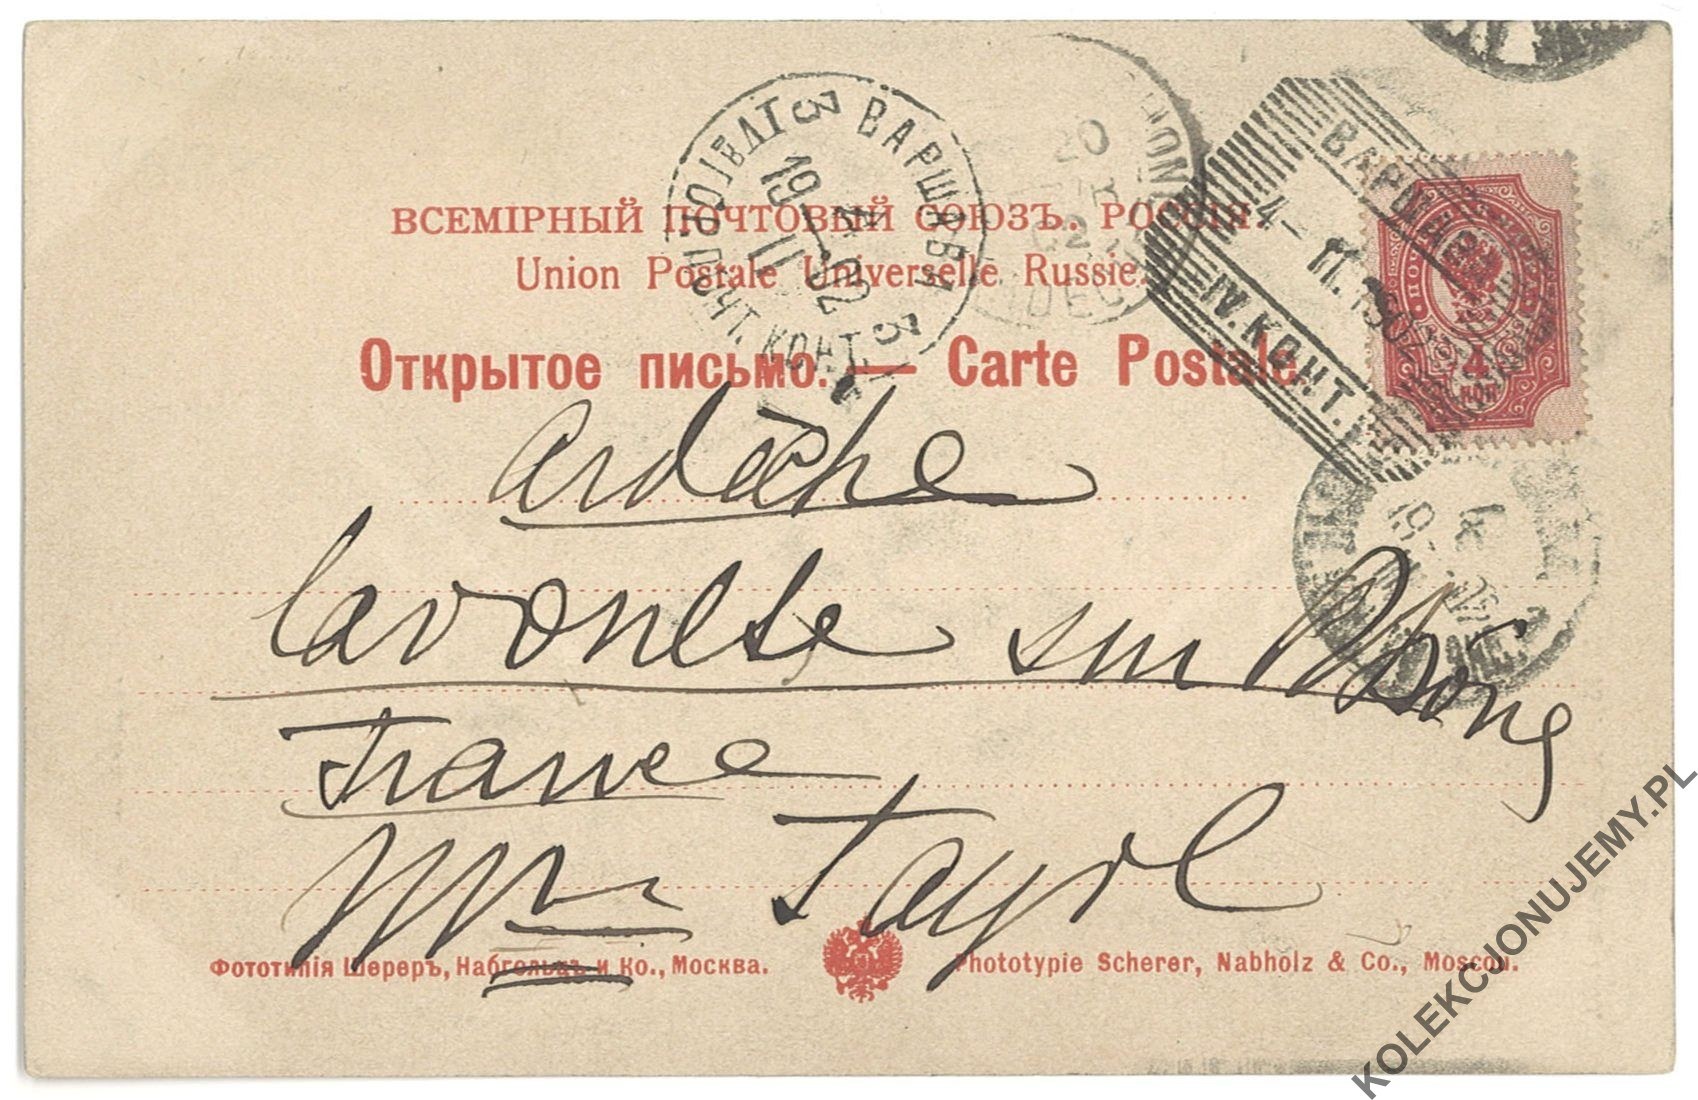 ВСЕМІРНЫЙ ПОЧТОВЫЙ СОЮЗЪ. РОССІЯ.
Union Postale Universelle Russie.
Открытое письмо. — Carte Postale
ВАРШАВА
4-II.1902
IV.КОНТ.
ВАРШАВА
19 4 02
II
ПОЧТ. КОНТ.
20
4
КОП
ardèche
lavoulte sur Rhône
France
Mme Tayol
Фототипія Шереръ, Набгольцъ и Ко., Москва.
Phototypie Scherer, Nabholz & Co., Moscou.
KOLEKCJONUJEMY.PL